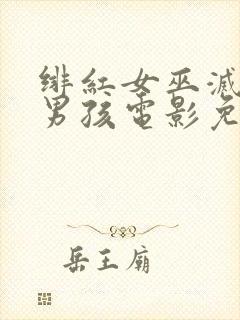 绯紅女巫滅
男孩電影免
岳王廟